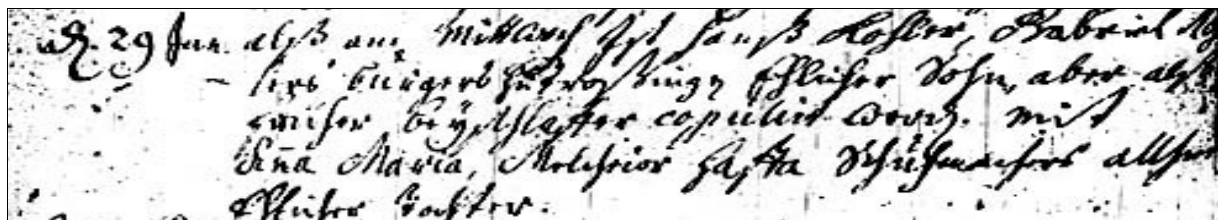 d. 29 Jan. alß am Mittwoch Ist Hanß Kohler, Gabriel Koh
lers burgers zu Trossingen Ehlicher Sohn, aber alß
früher beyschlaffer copulirt word. mit
Anna Maria, Melchior Schuhmachers
Ehlicher Tochter.